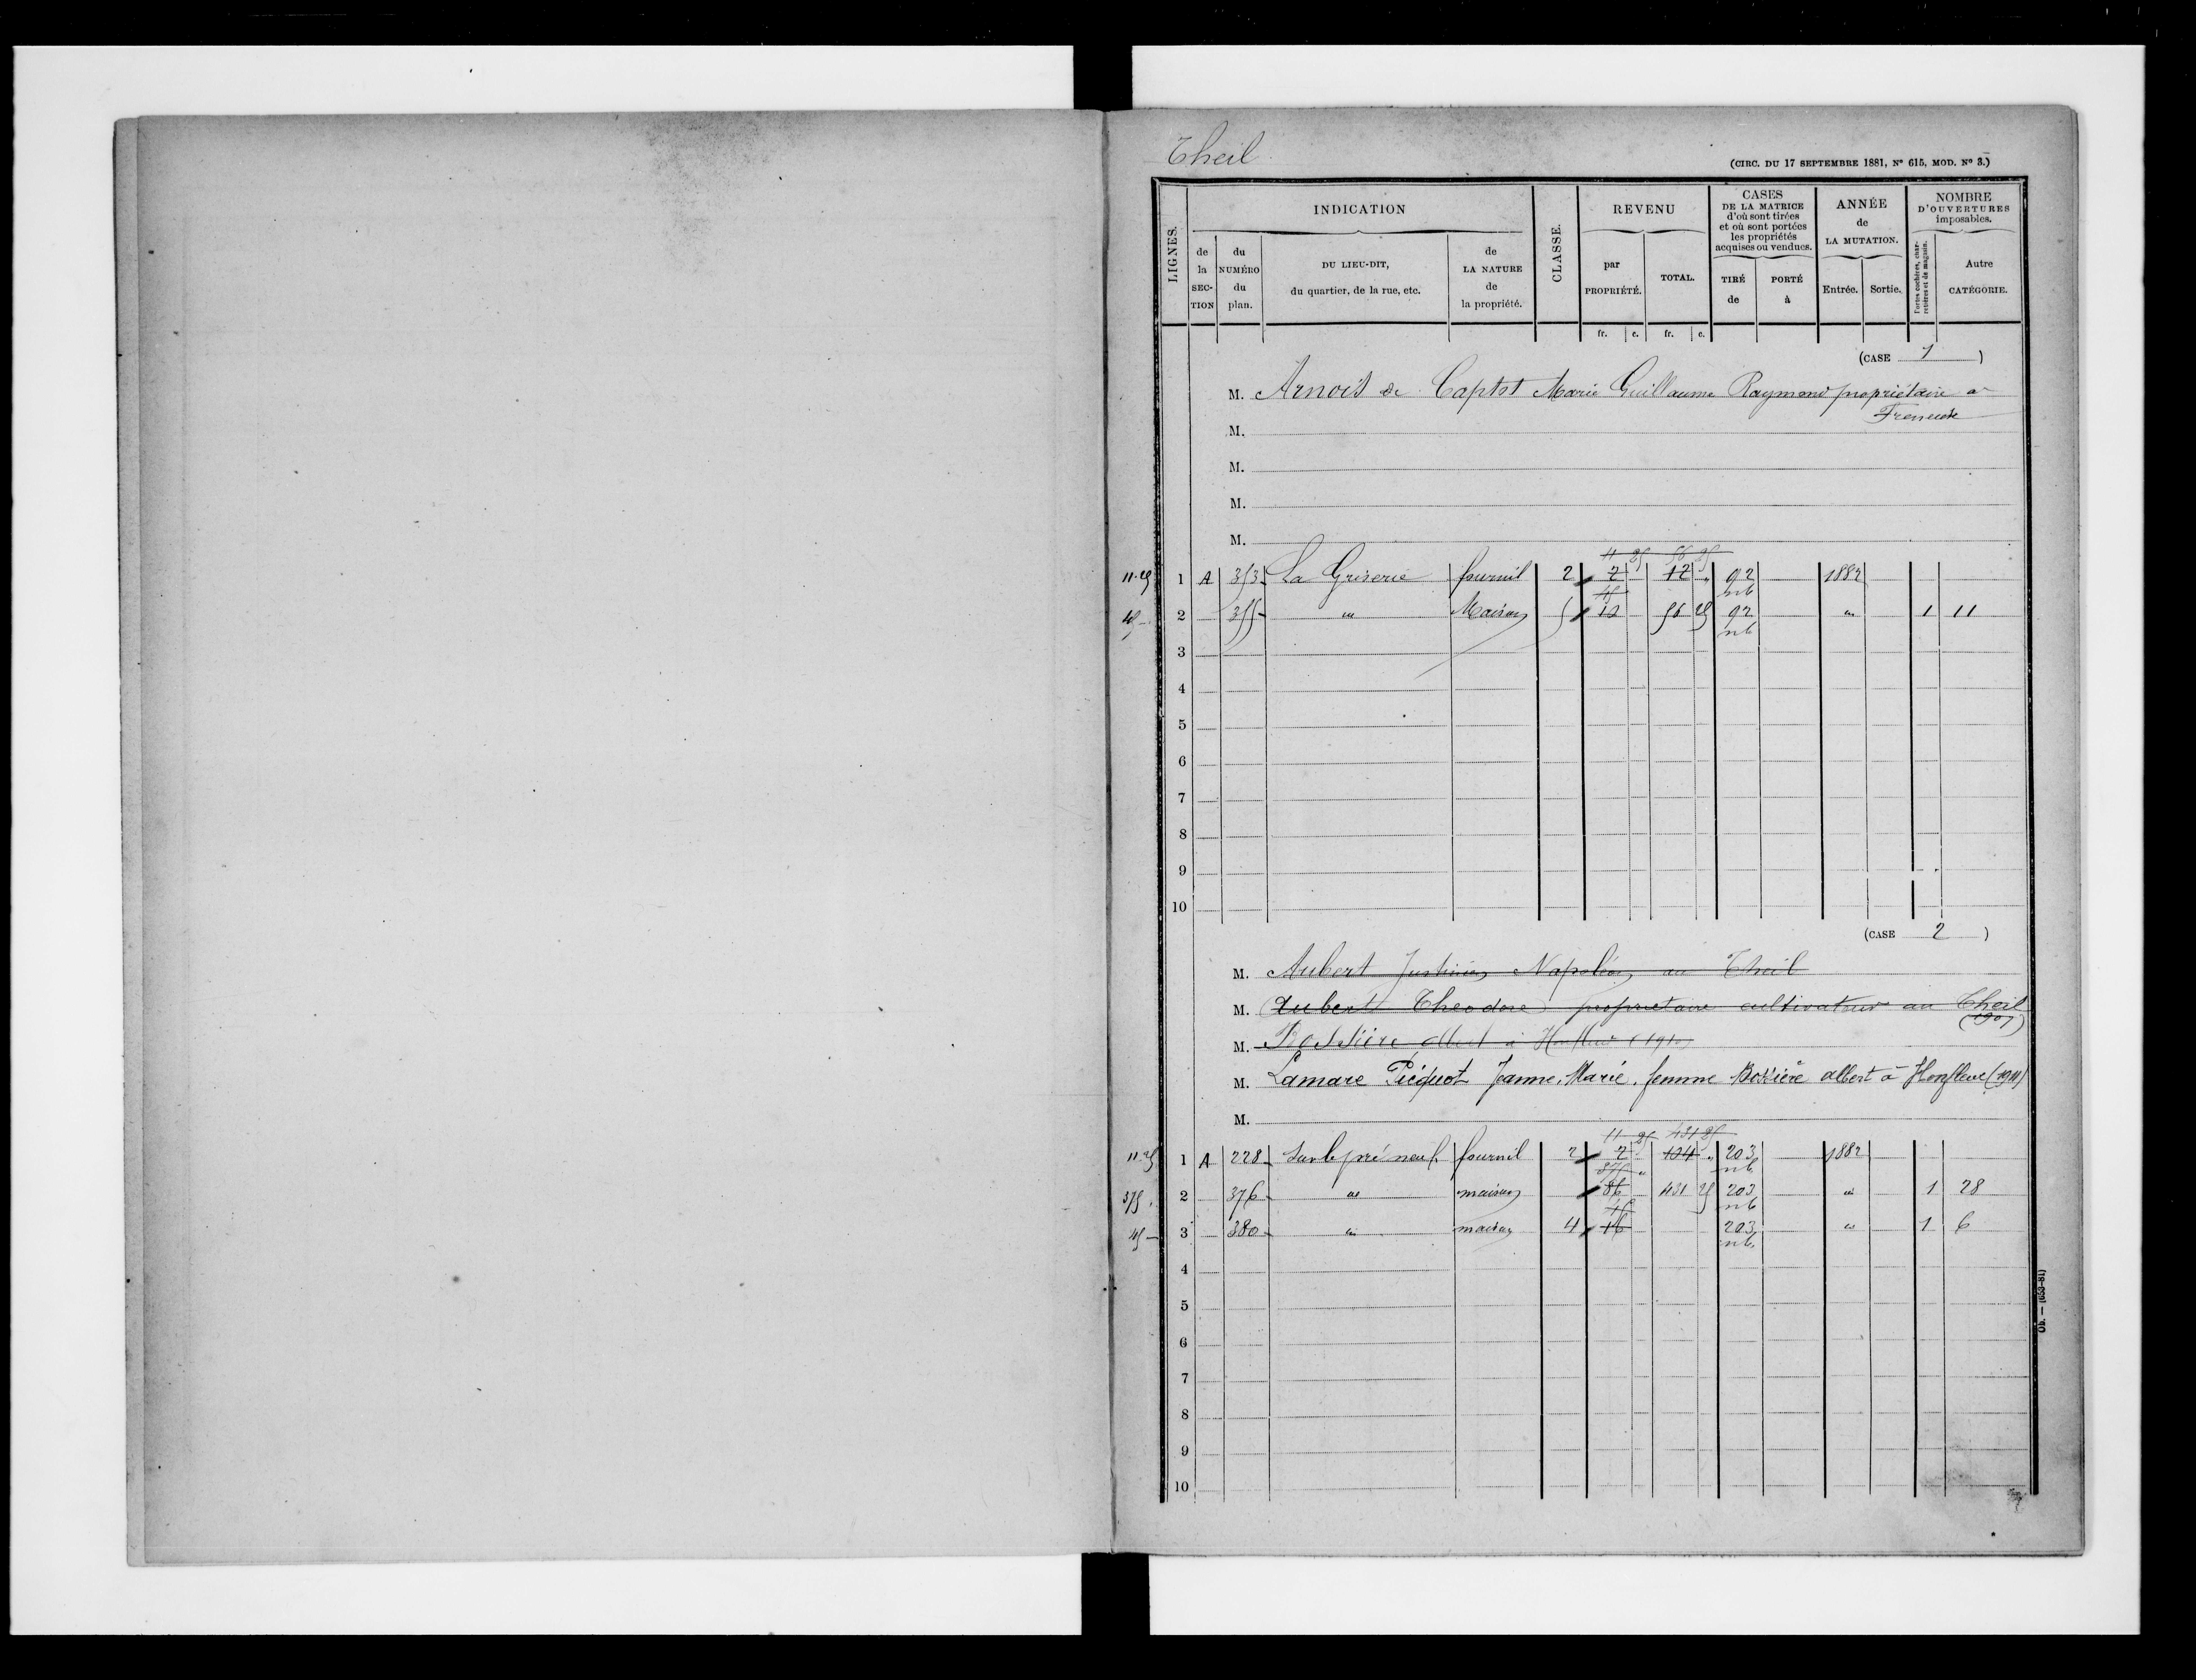 Theil
(CIRC. DU 17 SEPTEMBRE 1881, Nº 615, MOD. Nº 3.)
LIGNES.
INDICATION
CLASSE.
REVENU
CASES
DE LA MATRICE
d'où sont tirées
et où sont portées
les propriétés
acquises ou vendues.
ANNÉE
de
LA MUTATION.
NOMBRE
D'OUVERTURES
imposables.
de la SEC-TION
du NUMÉRO du plan.
DU LIEU-DIT,
du quartier, de la rue, etc.
de LA NATURE de la propriété.
par PROPRIÉTÉ.
TOTAL.
TIRÉ de
PORTÉ à
Entrée.
Sortie.
Portes cochères, char-retières et de magasin.
Autre CATÉGORIE.
fr. c. fr. c.
(CASE 1)
M. Arnois de Captot Marie Guillaume Raymond propriétaire a
Freneuse
M.
M.
M.
M.
11 25 56 25
11.25 1 A 353 La Griserie fournil 2 2 12 " 92 1882
45 nb
45 2 355 " Maison 5 12 56 25 92 " 1 11
nb
3
4
5
6
7
8
9
10
(CASE 2)
M. Aubert Justinien Napoléon au Theil
M. Aubert Theodore propriétaire cultivateur au Theil
(1907)
M. Bossière Albert à Honfleur (1910)
M. Lamare Picquot Jeanne, Marie, femme Bossière albert à Honfleur (1911)
M.
11 25 431 25
11.25 1 A 228 Sur le pré neuf fournil 2 2 104 " 203 1882
375 " nb
375 2 376 " maison 86 431 25 203 " 1 28
45 nb
45 3 380 " maison 4 16 203 " 1 6
nb.
4
5
6
7
8
9
10
Ob. — (653-81)